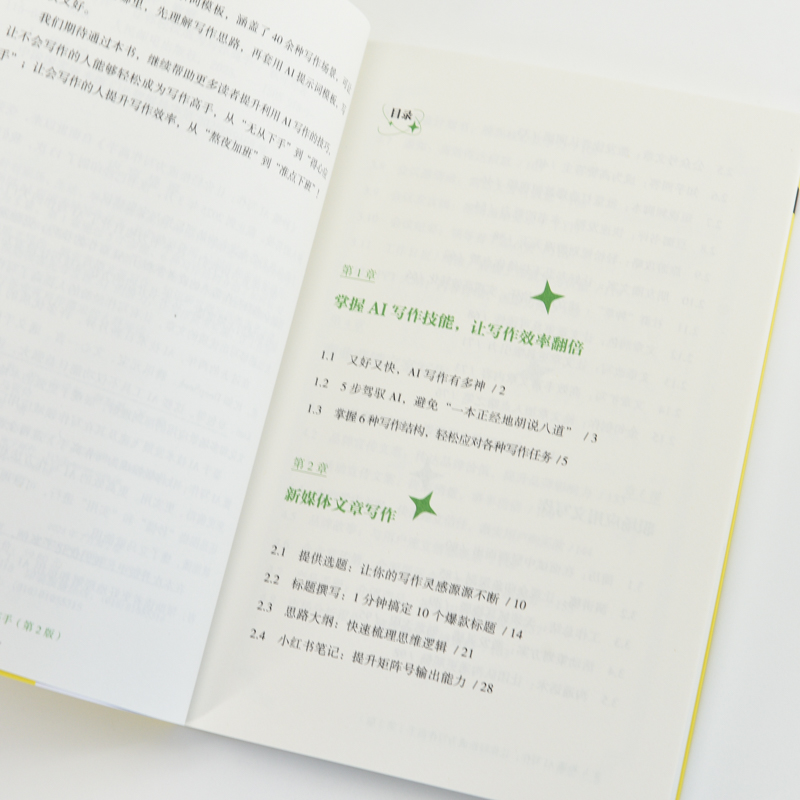 又好。
词模板，涵盖了 40 余种写作场景，可以
里，先理解写作思路，再套用 AI 提示词模板，写
我们期待通过本书，继续帮助更多读者提升利用 AI 写作的技巧，
让不会写作的人能够轻松成为写作高手，从“无从下手”到“得心应
手”；让会写作的人提升写作效率，从“熬夜加班”到“准点下班”！
手（第 2 版）
目录
第 1 章
掌握 AI 写作技能，让写作效率翻倍
1.1 又好又快，AI 写作有多神 / 2
1.2 5 步驾驭 AI，避免“一本正经地胡说八道” / 3
1.3 掌握 6 种写作结构，轻松应对各种写作任务 / 5
第 2 章
新媒体文章写作
2.1 提供选题：让你的写作灵感源源不断 / 10
2.2 标题撰写：1 分钟搞定 10 个爆款标题 / 14
2.3 思路大纲：快速梳理思维逻辑 / 21
2.4 小红书笔记：提升矩阵号输出能力 / 28